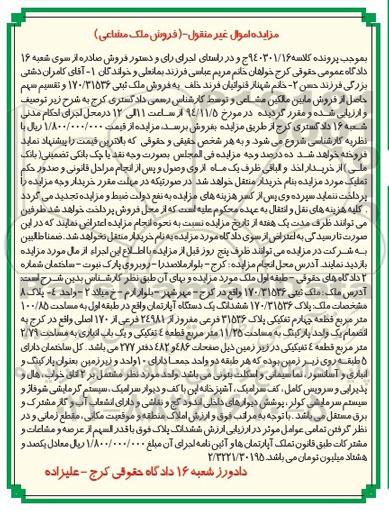 مزایده اموال غیر منقول-(فروش ملک مشاعی)
بموجب پرونده کلاسه ۹۴۰۳۰۱/۱۶ج و در راستای اجرای رای و دستور فروش صادره از سوی شعبه ۱۶
دادگاه عمومی حقوقی کرج خواهان خانم مریم عباسی فرزند بمانعلی و خواندگان ۱- آقای کامران دشتی
بزرگی فرزند حسن ۲- خانم شهناز قنواتیان فرزند خلف به فروش ملک ثبتی ۱۷۰/۳۱۵۳۶ و تقسیم سهم
حاصل از فروش مابین مالکین مشاعی و توسط کارشناس رسمی دادگستری کرج به شرح زیر توصیف
و ارزیابی شده و مقرر گردیده در مورخ ۹۴/۱۱/۵ از ساعت ۱۱ الی ۱۲ در محل اجرای احکام مدنی
شعبه ۱۶ دادگستری کرج از طریق مزایده بفروش برسد، مزایده از قیمت ۱/۸۰۰/۰۰۰/۰۰۰ ریال با
نظریه کارشناسی شروع می شود و به هر شخص حقیقی و حقوقی که بالاترین قیمت را پیشنهاد نماید
فروخته خواهد شد ده درصد وجه مزایده فی المجلس بصورت وجه نقد یا چک بانکی تضمینی(بانک
ملی) از خریدار اخذ و الباقی ظرف یک ماه از وی وصول و پس از انجام مراحل قانونی و صدور حکم
تملیک مورد مزایده بنام خریدار منتقل خواهد شد در صورتیکه در مهلت مقرر خریدار وجه مزایده را
پرداخت ننماید سپرده وی پس از کسر هزینه های مزایده به نفع دولت ضبط و مزایده تجدید می گردد
. کلیه هزینه های نقل و انتقال به عهده محکوم علیه است که از محل فروش پرداخت خواهد شد طرفین
می توانند ظرف مدت یک هفته از تاریخ مزایده نسبت به نحوه انجام مزایده اعتراض نمایند که در این
صورت تا رسیدگی به اعتراض از سوی دادگاه مورد مزایده به نام خریدار منتقل نخواهد شد. ضمنا طالبین
به شرکت در مزایده می توانند ظرف پنج روز قبل از مزایده با اطلاع این اجراء از مال مورد مزایده
بازدید نمایند. آدرس محل انجام مزایده: کرج - بلوار ملاصدرا - روبروی پارک نبوت - ساختمان شماره
۲ دادگاه های حقوقی - طبقه اول ملک مورد مزایده و بهای آن طبق نظر کارشناس بدین شرح است:
آدرس ملک: ملک ثبتی ۱۷۰/۳۱۵۳۶ واقع در کرج - مهرشهر - بلوار ارم - خ میلاد ۲- واحد ۴- پلاک ۸
مشخصات ملک: پلاک ۱۷۰/۳۱۵۳۶ ششدانگ یک دستگاه آپارتمان واقع در طبقه اول به مساحت ۱۰۰/۸۵
متر مربع قطعه چهارم تفکیکی پلاک ۳۱۵۳۶ فرعی مفروز از ۲۴۹۸۱ فرعی از ۱۷۰ اصلی واقع در کرج به
انضمام یک واحد پارکینگ به مساحت ۱۱/۲۵ متر مربع قطعه ۴ تفکیکی و یک باب انباری به مساحت ۲/۷۹
متر مربع قطعه ۴ تفکیکی در زیرزمین ذیل صفحات ۴۸۶ و ۴۸۲ دفتر ۲۷۷ می باشد. کل ساختمان دارای
۵ طبقه روی زیرزمین بوده که هر طبقه دو واحد جمعا دارای ۱۰ واحد و زیرزمین بعنوان پارکینگ و
انباری و آسانسور اساسیانی و اسکلت بتونی می باشد واحد مورد نظر مشتمل بر ۲ اتاق خواب، هال و
پذیرایی و سرویس کامل، کف سرامیک، آشپزخانه اپن با کف و دیوار سرامیک، سیستم گرمایش شوفاژ و
سیستم سرمایش کولر، پوشش دیوارهای داخلی اندود گچ و نقاشی و دارای انشعابات آب و گاز مشترک و
برق مستقل می باشد . با توجه به مراتب فوق و ارزش املاک منطقه و موقعیت مکانی، مقطع زمانی و در
نظر گرفتن تمامی عوامل موثر در ارزیابی ارزش ششدانگ پلاک فوق با قدر السهم از عرصه و مشاعات و
مشترکات طبق قانون تملک آپارتمان ها و آئین نامه اجرای آن مبلغ ۱/۸۰۰/۰۰۰/۰۰۰ ریال معادل یکصد و
هشتاد میلیون تومان می باشد. ۲/۳۲۲۱/۳۰۱۹۵
دادورز شعبه ۱۶ دادگاه حقوقی کرج - علیزاده